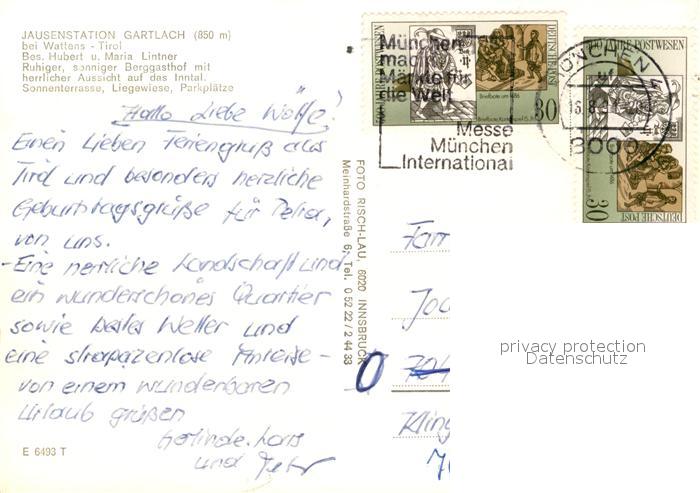 JAUSENSTATION GARTLACH (850 m)
bei Wattens - Tirol
Bes. Hubert u. Maria Lintner
Ruhiger, sonniger Berggasthof mit
herrlicher Aussicht auf das Inntal.
Sonnenterrasse, Liegewiese, Parkplätze
Hallo Liebe Wölfe!
Einen Lieben Feriengruß aus
Tirol und besonders herzliche
Geburtstagsgrüße für Petra,
von uns.
- Eine herrliche Landschaft und
ein wunderschönes Quartier
sowie bestes Wetter und
eine strapazenlose Anreise -
von einem wunderbaren
Urlaub grüßen
Gerlinde, Lars
und Peter
E 6493 T
FOTO RISCH-LAU, 6020 INNSBRUCK
Meinhardstraße 6, Tel. 0 52 22 / 2 44 33
München
mac
Märkte für
die Welt
Messe
München
International
500 JAHRE POSTWESEN
DEUTSCHE POST
Briefbote um 1486
30
MÜNCHEN
8000
500 JAHRE POSTWESEN
DEUTSCHE POST
30
Fam
704
Kling
privacy protection
Datenschutz